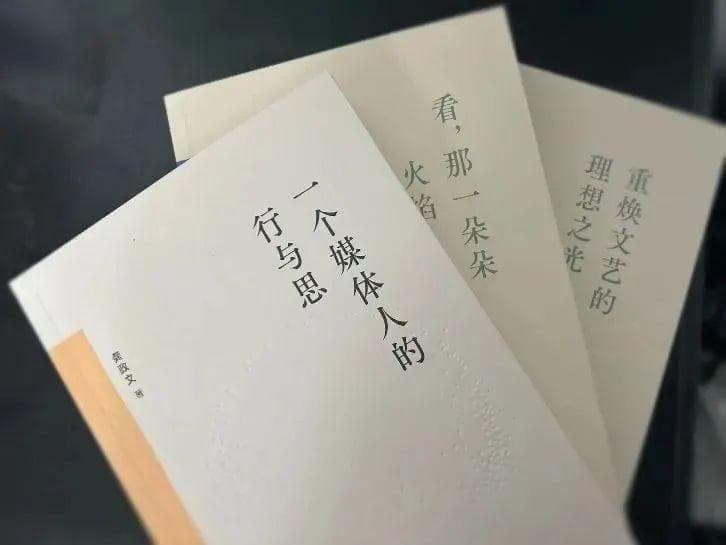 一个媒体人的
行与思
龚政文 著
看，那一朵朵
火焰
重焕文艺的
理想之光